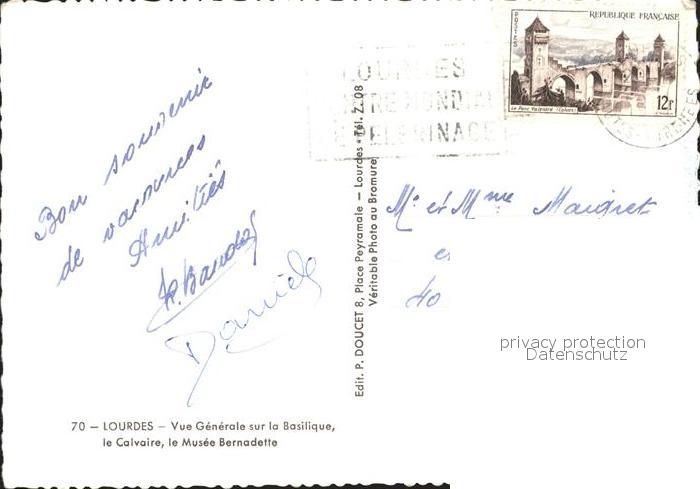 POSTES
REPUBLIQUE FRANÇAISE
Le Pont Valentré (Cahors)
12F
LOURDES
PELERINAGE
Bon souvenir
de vacances
Amitiés
Daniel
Mr et Mme Maigret
et
40
Edit. P. DOUCET 8, Place Peyramale — Lourdes • Tél. 7.08
Véritable Photo au Bromure
privacy protection
Datenschutz
70 — LOURDES — Vue Générale sur la Basilique,
le Calvaire, le Musée Bernadette